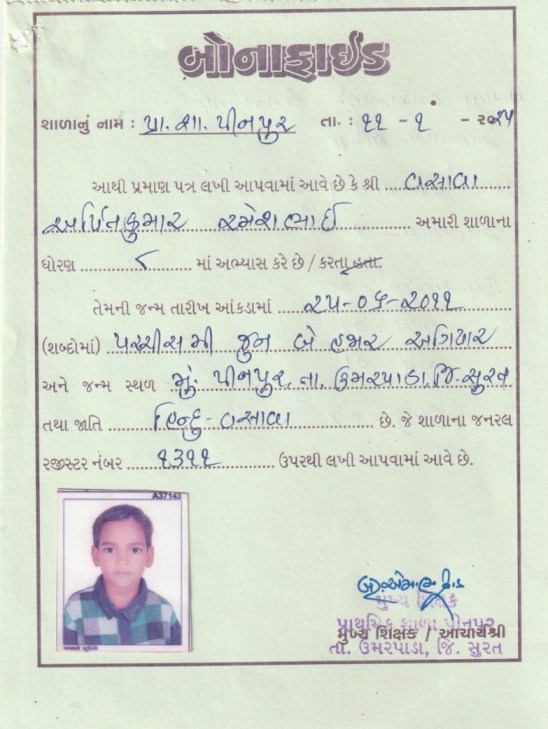 બોનાફાઈડ
શાળાનું નામ : પ્રા. શા. પીનપુર તા. : ૧૧ - ૧ - ૨૦૨૫
આથી પ્રમાણ પત્ર લખી આપવામાં આવે છે કે શ્રી વસાવા
અર્પિતકુમાર રમેશભાઈ અમારી શાળાના
ધોરણ ૮ માં અભ્યાસ કરે છે / કરતા હતા.
તેમની જન્મ તારીખ આંકડામાં ૨૫-૦૬-૨૦૧૧
(શબ્દોમાં) પચ્ચીસમી જુન બે હજાર અગિયાર
અને જન્મ સ્થળ મું. પીનપુર, તા. ઉમરપાડા, જિ. સુરત
તથા જાતિ હિન્દુ - વસાવા છે. જે શાળાના જનરલ
રજીસ્ટર નંબર ૧૩૧૧ ઉપરથી લખી આપવામાં આવે છે.
A37143
મુખ્ય શિક્ષક
પ્રાથમિક શાળા પીનપુર
મુખ્ય શિક્ષક / આચાર્યશ્રી
તા. ઉમરપાડા, જિ. સુરત